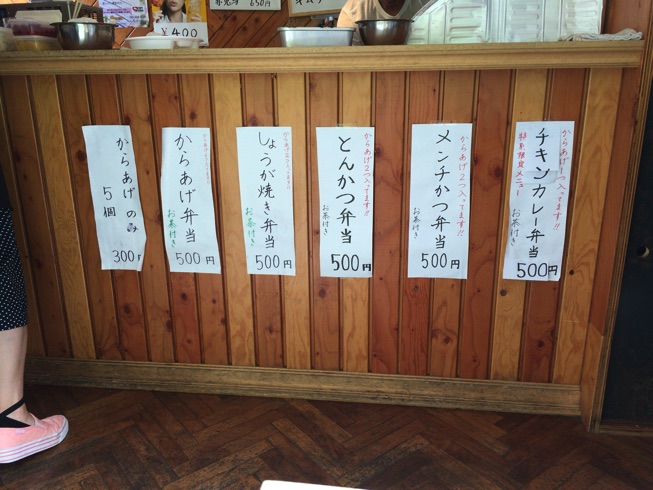 ¥400
650円
チキンカレー弁当
からあげ1つ入ってます!!
お茶付き
500円
メンチかつ弁当
からあげ2つ入ってます!!
お茶付き
500円
とんかつ弁当
からあげ2つ入ってます!!
お茶付き
500円
しょうが焼き弁当
からあげ2つ入ってます!!
お茶付き
500円
からあげ弁当
お茶付き
500円
からあげのみ
5個
300円